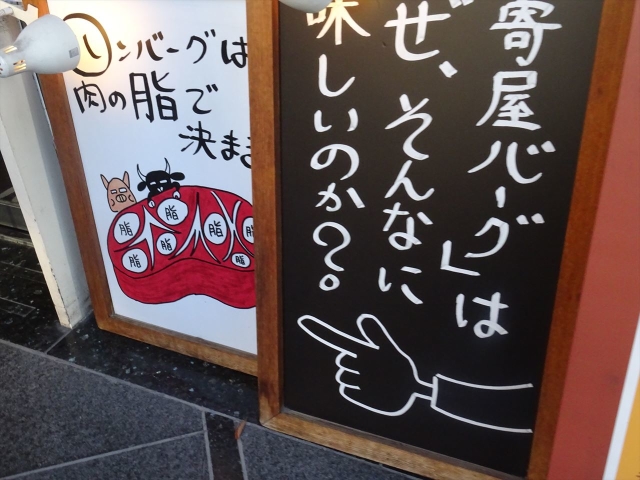 寄屋バーグ」は
ぜ、そんなに
味しいのか?。
ンバーグは
肉の脂で
決ま
脂
脂
脂
脂
脂
脂